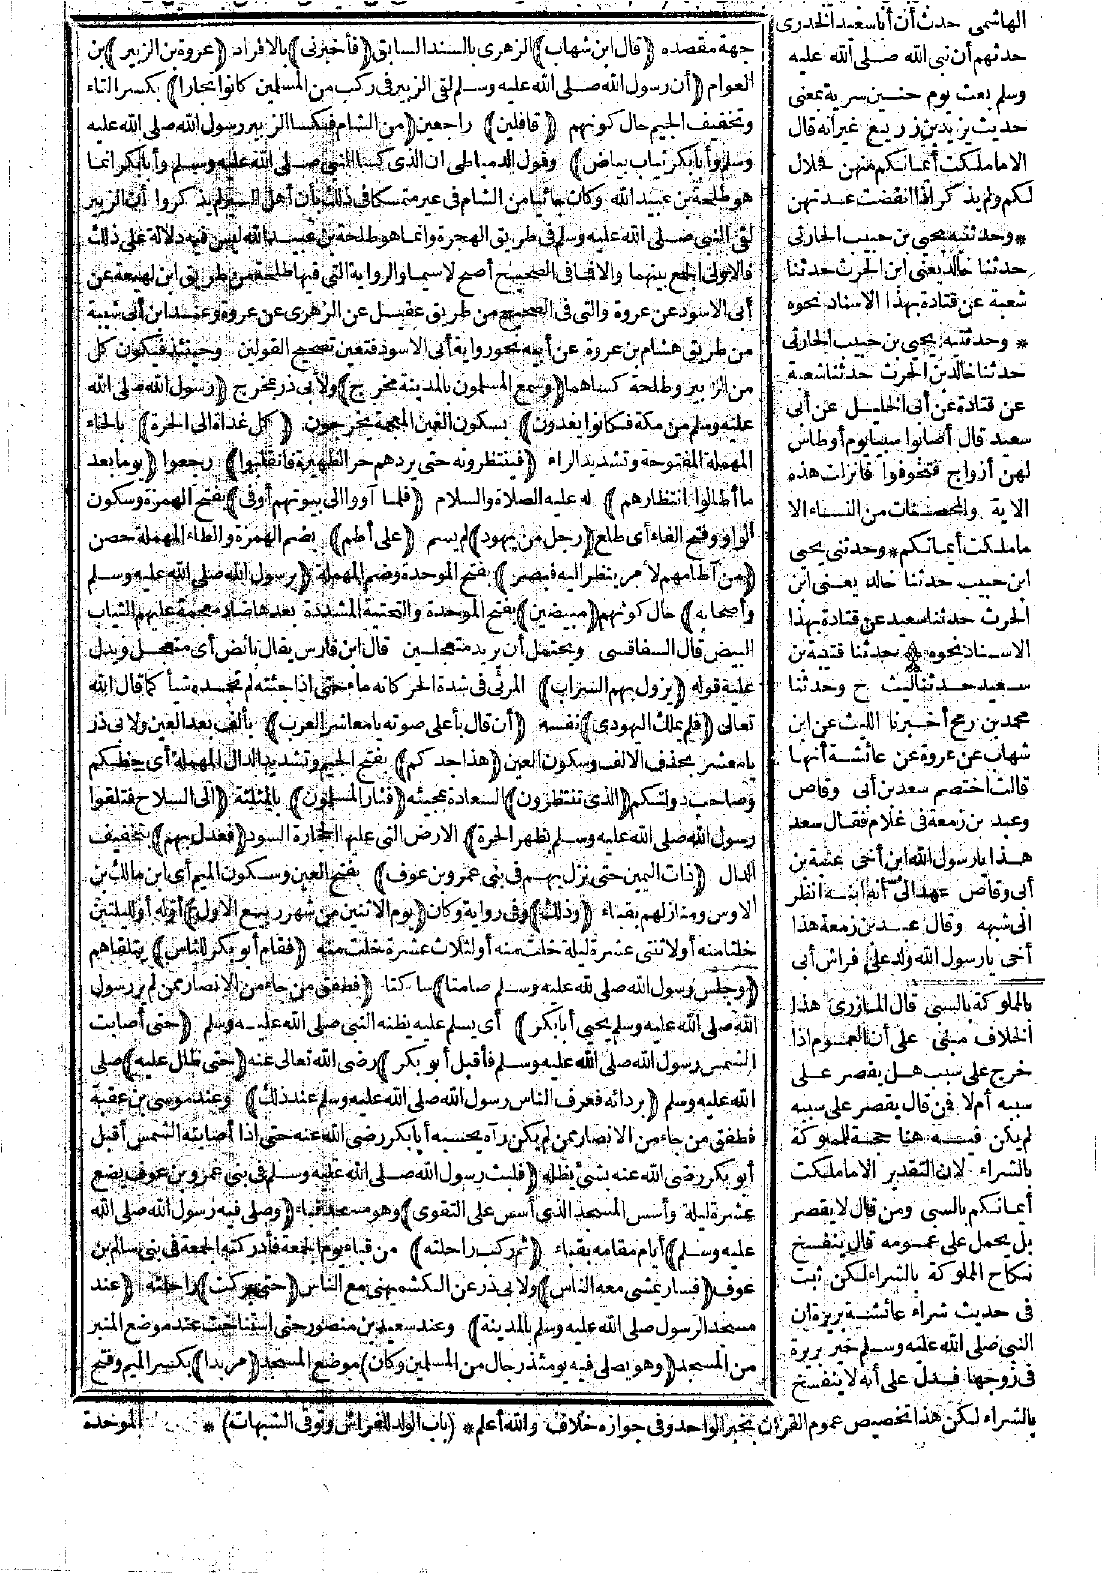 جهة مقصده (قال ابن شهاب) الزهرى بالسند السابق (فأخبرنى) بالافراد (عروة بن الزبير) بن
العوام (أن رسول الله صلى الله عليه وسلم لقى الزبير فى ركب من المسلمين كانوا تجارا) بكسر التاء
وتخفيف الجيم حال كونهم (قافلين) راجعين (من الشام فكسا الزبير رسول الله صلى الله عليه
وسلم وأبا بكر ثياب بياض) وقول الدمياطى ان الذى كسا النبى صلى الله عليه وسلم وأبا بكر انما
هو طلحة بن عبيد الله وكان جائيا من الشام فى عير متمسكا فى ذلك بأن أهل السير لم يذكروا أن الزبير
لقى النبى صلى الله عليه وسلم فى طريق الهجرة وانما هو طلحة بن عبيد الله ليس فيه دلالة على ذلك
فالاولى الجمع بينهما والا فما فى الصحيح أصح لاسيما والرواية التى فيها طلحة من طريق ابن لهيعة عن
أبى الاسود عن عروة والتى فى الصحيح من طريق عقيل عن الزهرى عن عروة وعند ابن أبى شيبة
من طريق هشام بن عروة عن أبيه نحو رواية أبى الاسود فتعين تصحيح القولين وحينئذ فيكون كل
من الزبير وطلحة كساهما (وسمع المسلمون بالمدينة مخرج) ولابى ذر بمخرج (رسول الله صلى الله
عليه وسلم من مكة فكانوا يغدون) بسكون الغين المعجمة يخرجون (كل غداة الى الحرة) بالحاء
المهملة المفتوحة وتشديد الراء (فينتظرونه حتى يردهم حر الظهيرة فانقلبوا) رجعوا (يوما بعد
ما أطالوا انتظارهم) له عليه الصلاة والسلام (فلما آووا الى بيوتهم أوفى) بفتح الهمزة وسكون
الواو وفتح الفاء أى طلع (رجل من يهود) لم يسم (على أطم) بضم الهمزة والطاء المهملة حصن
(من آطامهم لامر ينظر اليه فبصر) بفتح الموحدة وضم المهملة (برسول الله صلى الله عليه وسلم
وأصحابه) حال كونهم (مبيضين) بفتح الموحدة والتحتية المشددة بعدها ضاد معجمة عليهم الثياب
البيض قال السفاقسى ويحتمل أن يريد متعجلين قال ابن فارس يقال بائض أى متعجل ويدل
عليه قوله (يزول بهم السراب) المرئى فى شدة الحر كانه ماء حتى اذا جئته لم تجده شيأ كما قال الله
تعالى (فلم يملك اليهودى) نفسه (أن قال بأعلى صوته يا معاشر العرب) بألف بعد العين ولابى ذر
يا معشر بحذف الالف وسكون العين (هذا جدكم) بفتح الجيم وتشديد الدال المهملة أى حظكم
وصاحب دولتكم (الذى تنتظرون) السعادة بمجيئه (فثار المسلمون) بالمثلثة (الى السلاح فتلقوا
رسول الله صلى الله عليه وسلم بظهر الحرة) الارض التى عليها الحجارة السود (فعدل بهم) بتخفيف
الدال (ذات اليمين حتى نزل بهم فى بنى عمرو بن عوف) بفتح العين وسكون الميم أى ابن مالك بن
الاوس ومنازلهم بقباء (وذلك) وفى رواية وكان (يوم الاثنين من شهر ربيع الاول) أوله أو لليلتين
خلتا منه أو لاثنتى عشرة ليلة خلت منه أو لثلاث عشرة خلت منه (فقام أبو بكر للناس) يتلقاهم
(وجلس رسول الله صلى لله عليه وسلم صامتا) ساكتا (فطفق من جاء من الانصار ممن لم ير رسول
الله صلى الله عليه وسلم يحيى أبا بكر) أى يسلم عليه يظنه النبى صلى الله عليه وسلم (حتى أصابت
الشمس رسول الله صلى الله عليه وسلم فأقبل أبو بكر) رضى الله تعالى عنه (حتى ظلل عليه) صلى
الله عليه وسلم (بردائه فعرف الناس رسول الله صلى الله عليه وسلم عند ذلك) وعند موسى بن عقبة
فطفق من جاء من الانصار ممن لم يكن رآه يحسبه أبا بكر رضى الله عنه حتى اذا أصابته الشمس أقبل
أبو بكر رضى الله عنه بشئ يظله (فلبث رسول الله صلى الله عليه وسلم فى بنى عمرو بن عوف بضع
عشرة ليلة وأسس المسجد الذى أسس على التقوى) وهو مسجد قباء (وصلى فيه رسول الله صلى الله
عليه وسلم) أيام مقامه بقباء (ثم ركب راحلته) من قباء يوم الجمعة فأدركته الجمعة فى بنى سالم بن
عوف (فسار يمشى معه الناس) ولابى ذر عن الكشميهنى مع الناس (حتى بركت) راحلته (عند
مسجد الرسول صلى الله عليه وسلم بالمدينة) وعند سعيد بن منصور حتى استناخت عند موضع المنبر
من المسجد (وهو يصلى فيه يومئذ رجال من المسلمين وكان) موضع المسجد (مربدا) بكسر الميم وفتح
الموحدة
الهاشمى حدث أن أبا سعيد الخدرى
حدثهم أن نبى الله صلى الله عليه
وسلم بعث يوم حنين سرية بمعنى
حديث يزيد بن زريع غير أنه قال
الا ما ملكت أيمانكم منهن فحلال
لكم ولم يذكر اذا انقضت عدتهن
* وحدثنيه يحيى بن حبيب الحارثى
حدثنا خالد يعنى ابن الحرث حدثنا
شعبة عن قتادة بهذا الاسناد نحوه
* وحدثنيه يحيى بن حبيب الحارثى
حدثنا خالد بن الحرث حدثنا شعبة
عن قتادة عن أبى الخليل عن أبى
سعيد قال أصابوا سبيا يوم أوطاس
لهن أزواج فتخوفوا فانزلت هذه
الاية والمحصنات من النساء الا
ما ملكت أيمانكم * وحدثنى يحيى
ابن حبيب حدثنا خالد يعنى ابن
الحرث حدثنا سعيد عن قتادة بهذا
الاسناد نحوه * حدثنا قتيبة بن
سعيد حدثنا ليث ح وحدثنا
محمد بن رمح أخبرنا الليث عن ابن
شهاب عن عروة عن عائشة أنها
قالت اختصم سعد بن أبى وقاص
وعبد بن زمعة فى غلام فقال سعد
هذا يا رسول الله ابن أخى عتبة بن
أبى وقاص عهد الى أنه ابنه انظر
الى شبهه وقال عبد بن زمعة هذا
أخى يا رسول الله ولد على فراش أبى
بالمملوكة بالسبى قال المازرى هذا
الخلاف مبنى على أن العموم اذا
خرج على سبب هل يقصر على
سببه أم لا فمن قال يقصر على سببه
لم يكن فيه هنا حجة للمملوكة
بالشراء لان التقدير الا ما ملكت
أيمانكم بالسبى ومن قال لا يقصر
بل يحمل على عمومه قال ينفسخ
نكاح المملوكة بالشراء لكن ثبت
فى حديث شراء عائشة بريرة ان
النبى صلى الله عليه وسلم خير بريرة
فى زوجها فدل على أنه لا ينفسخ
بالشراء لكن هذا تخصيص عموم القرآن بخبر الواحد وفى جوازه خلاف والله أعلم * (باب الولد للفراش وتوقى الشبهات) *